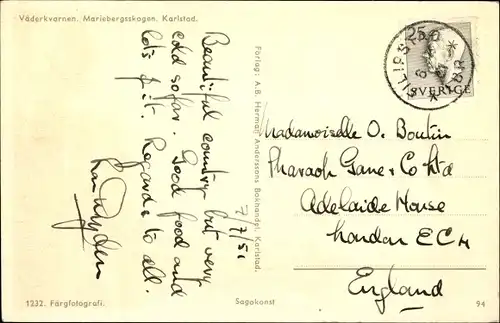 Väderkvarnen. Mariebergsskogen. Karlstad.
Beautiful country but very
cold so far. Good food and
lots of it. Regards to all.
7/7/51
Förlag: A.B. Herman Anderssons Bokhandel, Karlstad.
FILIPSTAD
25
SVERIGE
Madamoiselle O. Boutin
Pharaoh Gane & Co Ltd
Adelaide House
London EC4
England
1232. Färgfotografi.
Sagakonst
94